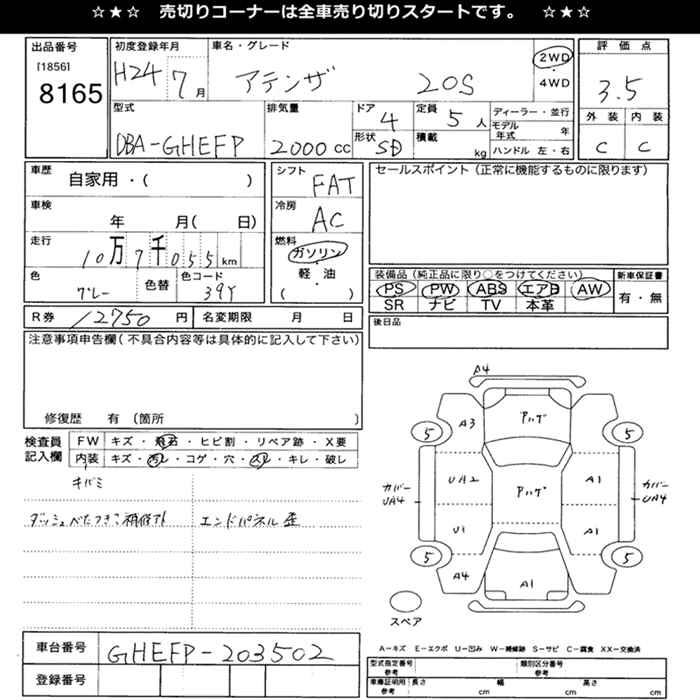 ☆★☆ 売切りコーナーは全車売り切りスタートです。 ☆★☆
出品番号
[1856]
8165
初度登録年月
H24 7月
車名・グレード
アテンザ 20S
2WD
・
4WD
評価点
3.5
外装 内装
C C
型式
DBA-GHEFP
排気量
2000cc
ドア
4
形状
SD
定員
5人
積載
kg
ディーラー・並行
モデル年式 年
ハンドル 左・右
車歴
自家用・( )
車検
年 月( 日)
走行
10万7千055km
色
グレー
色替
色コード
39Y
シフト
FAT
冷房
AC
燃料
ガソリン
・
軽・油
( )
セールスポイント(正常に機能するものに限ります)
装備品(純正品に限り○をつけてください)
PS PW ABS エアB AW
SR ナビ TV 本革
新車保証書
有・無
R券 12750円
名変期限 月 日
後日品
注意事項申告欄(不具合内容等は具体的に記入して下さい)
修復歴 有(箇所 )
検査員記入欄
FW キズ・飛石・ヒビ割・リペア跡・X要
内装 キズ・汚レ・コゲ・穴・スレ・キレ・破レ
キバミ
ダッシュべたつき 補修アト
エンドパネル歪
A4
A3
ハゲ
5
5
カバー
UA4
UA2
ハゲ
A1
カバー
UA4
U1
A1
5
5
A4
A1
スペア
A-キズ E-エクボ U-凹み W-補修跡 S-サビ C-腐食 XX-交換済
車台番号
GHEFP-203502
登録番号
型式指定番号
参考
類別区分番号
参考
車庫証明用
参考
長さ cm
幅 cm
高さ cm